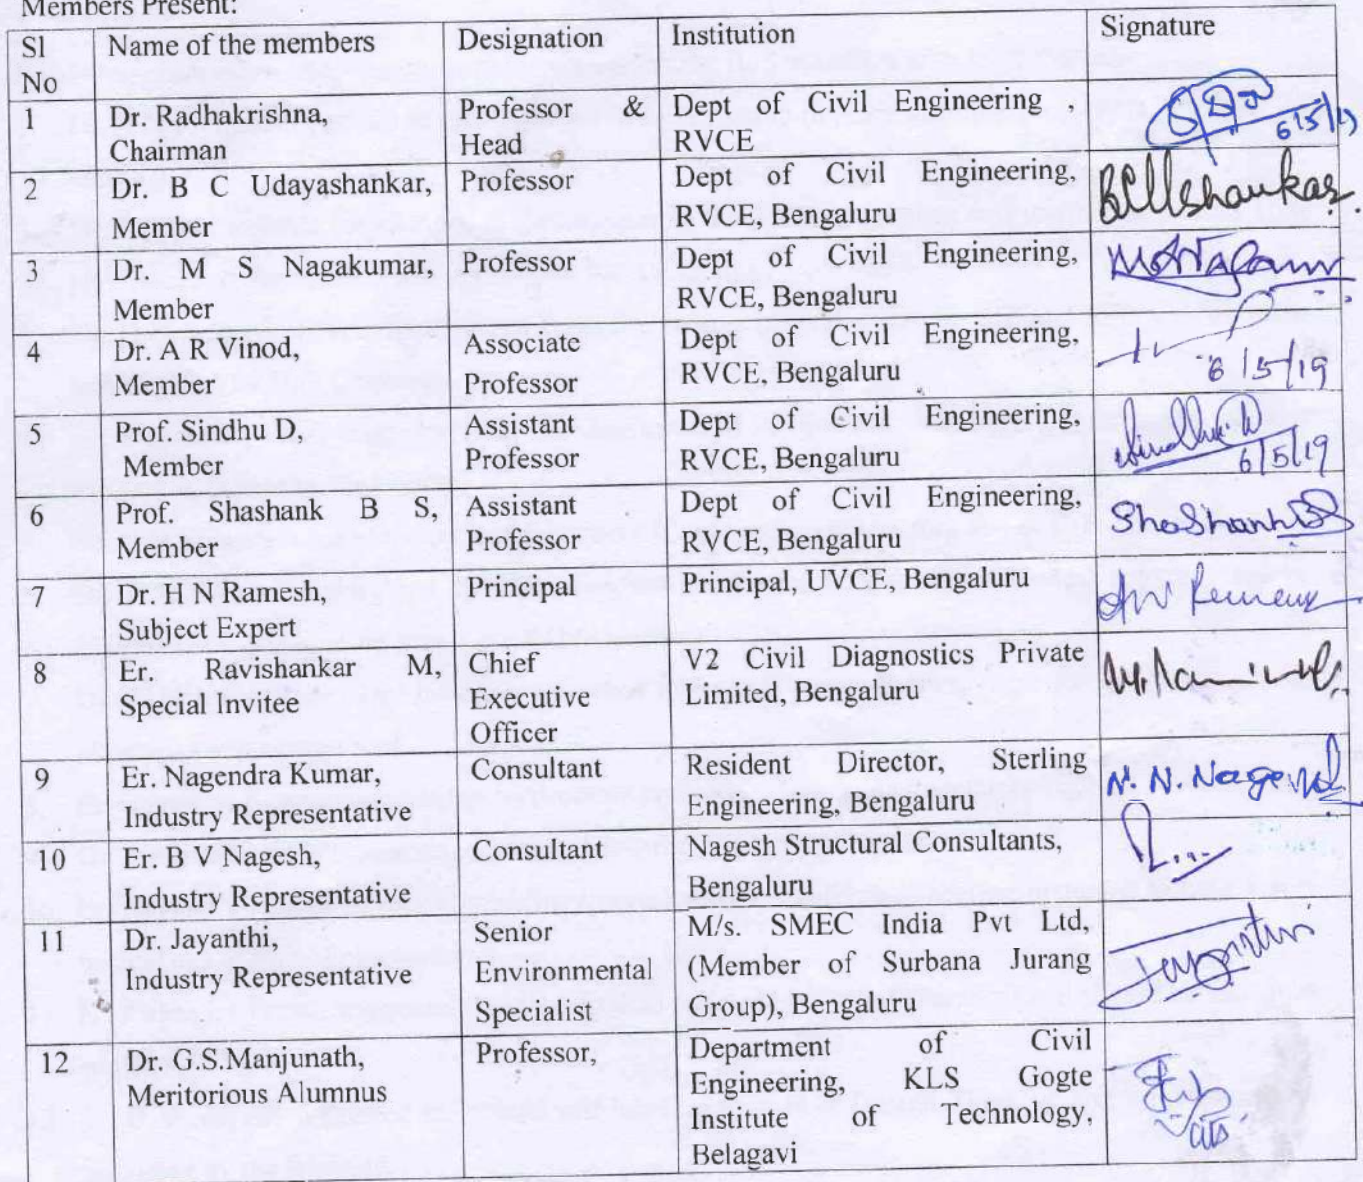 Members Present:
Sl No Name of the members Designation Institution Signature
1 Dr. Radhakrishna, Chairman Professor & Head Dept of Civil Engineering , RVCE 6/5/19
2 Dr. B C Udayashankar, Member Professor Dept of Civil Engineering, RVCE, Bengaluru BCUshankar.
3 Dr. M S Nagakumar, Member Professor Dept of Civil Engineering, RVCE, Bengaluru
4 Dr. A R Vinod, Member Associate Professor Dept of Civil Engineering, RVCE, Bengaluru 6/5/19
5 Prof. Sindhu D, Member Assistant Professor Dept of Civil Engineering, RVCE, Bengaluru Sindhu.D 6/5/19
6 Prof. Shashank B S, Member Assistant Professor Dept of Civil Engineering, RVCE, Bengaluru ShaShankBS
7 Dr. H N Ramesh, Subject Expert Principal Principal, UVCE, Bengaluru
8 Er. Ravishankar M, Special Invitee Chief Executive Officer V2 Civil Diagnostics Private Limited, Bengaluru
9 Er. Nagendra Kumar, Industry Representative Consultant Resident Director, Sterling Engineering, Bengaluru N. N. Nagend
10 Er. B V Nagesh, Industry Representative Consultant Nagesh Structural Consultants, Bengaluru
11 Dr. Jayanthi, Industry Representative Senior Environmental Specialist M/s. SMEC India Pvt Ltd, (Member of Surbana Jurang Group), Bengaluru Jayanthi
12 Dr. G.S.Manjunath, Meritorious Alumnus Professor, Department of Civil Engineering, KLS Gogte Institute of Technology, Belagavi